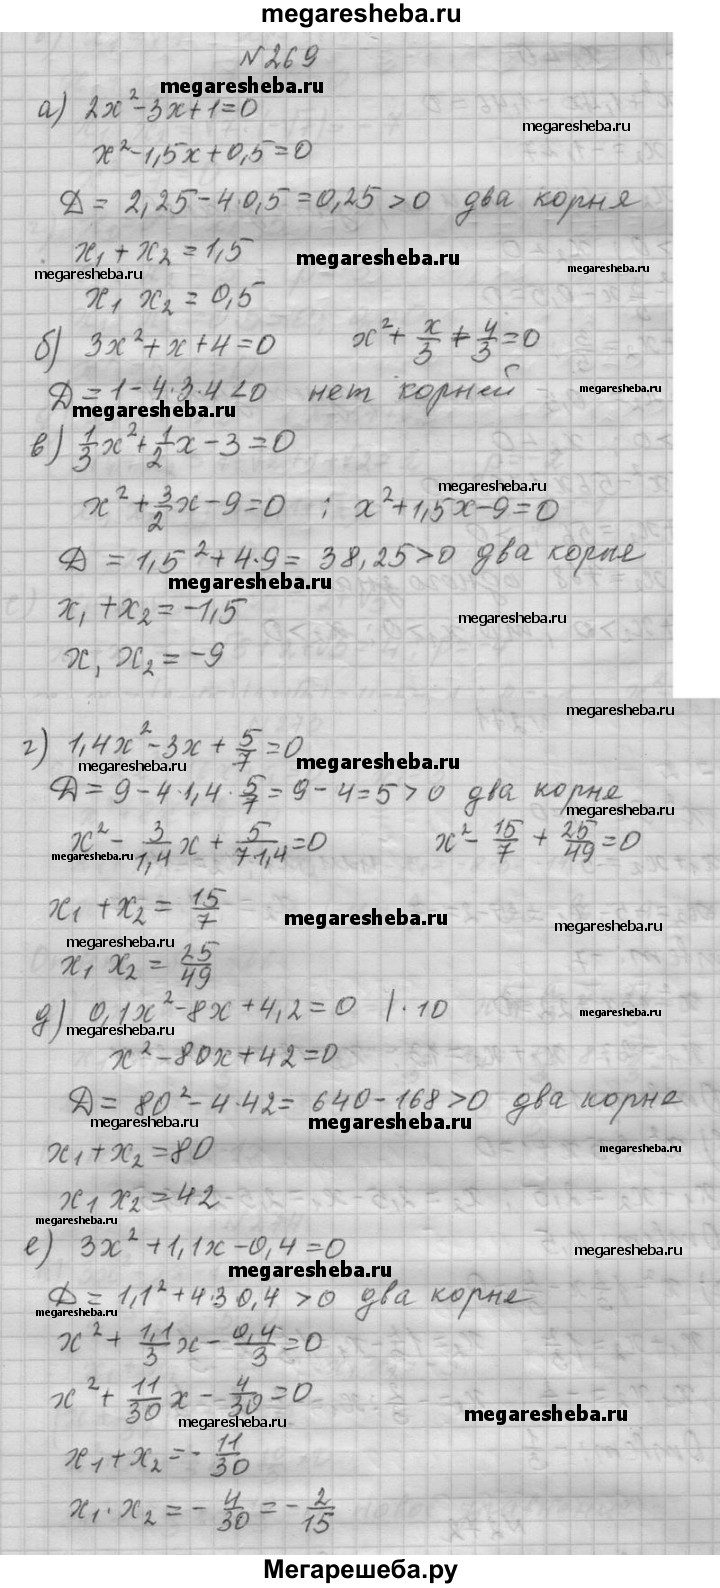 megaresheba.ru
№269
megaresheba.ru
а) 2x²-3x+1=0
megaresheba.ru
x²-1,5x+0,5=0
Д = 2,25-4·0,5=0,25>0 два корня
x₁+x₂=1,5
megaresheba.ru
megaresheba.ru megaresheba.ru
x₁ x₂ = 0,5
б) 3x²+x+4=0 x²+x/3+4/3=0
Д=1-4·3·4<0 нет корней
megaresheba.ru
megaresheba.ru
в) 1/3x²+1/2x-3=0
megaresheba.ru
x²+3/2x-9=0 ; x²+1,5x-9=0
Д = 1,5²+4·9= 38,25>0 два корня
megaresheba.ru
x₁+x₂=-1,5
megaresheba.ru
x₁ x₂=-9
megaresheba.ru
г) 1,4x²-3x+5/7=0
megaresheba.ru megaresheba.ru
Д=9-4·1,4·5/7=9-4=5>0 два корня
megaresheba.ru
x²-3/1,4x+5/7·1,4=0 x²-15/7+25/49=0
megaresheba.ru
x₁+x₂=15/7
megaresheba.ru
megaresheba.ru
megaresheba.ru
x₁ x₂=25/49
д) 0,1x²-8x+4,2=0 |·10
megaresheba.ru
megaresheba.ru
x²-80x+42=0
Д=80²-4·42= 640-168>0 два корня
megaresheba.ru megaresheba.ru
x₁+x₂=80
megaresheba.ru
x₁ x₂=42
megaresheba.ru
е) 3x²+1,1x-0,4=0
megaresheba.ru
megaresheba.ru
Д=1,1²+4·3 0,4>0 два корня
megaresheba.ru
x²+1,1/3x-0,4/3=0
x²+11/30x-4/30=0
megaresheba.ru
megaresheba.ru
x₁+x₂=-11/30
x₁·x₂=-4/30=-2/15
Мегарешеба.ру